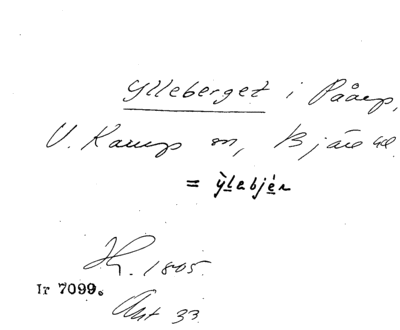 Ylleberget i Påarp,
V. Karup sn, Bjäre hd.
= ỳlabjér
H. 1805.
Ir 7099.
Akt 33